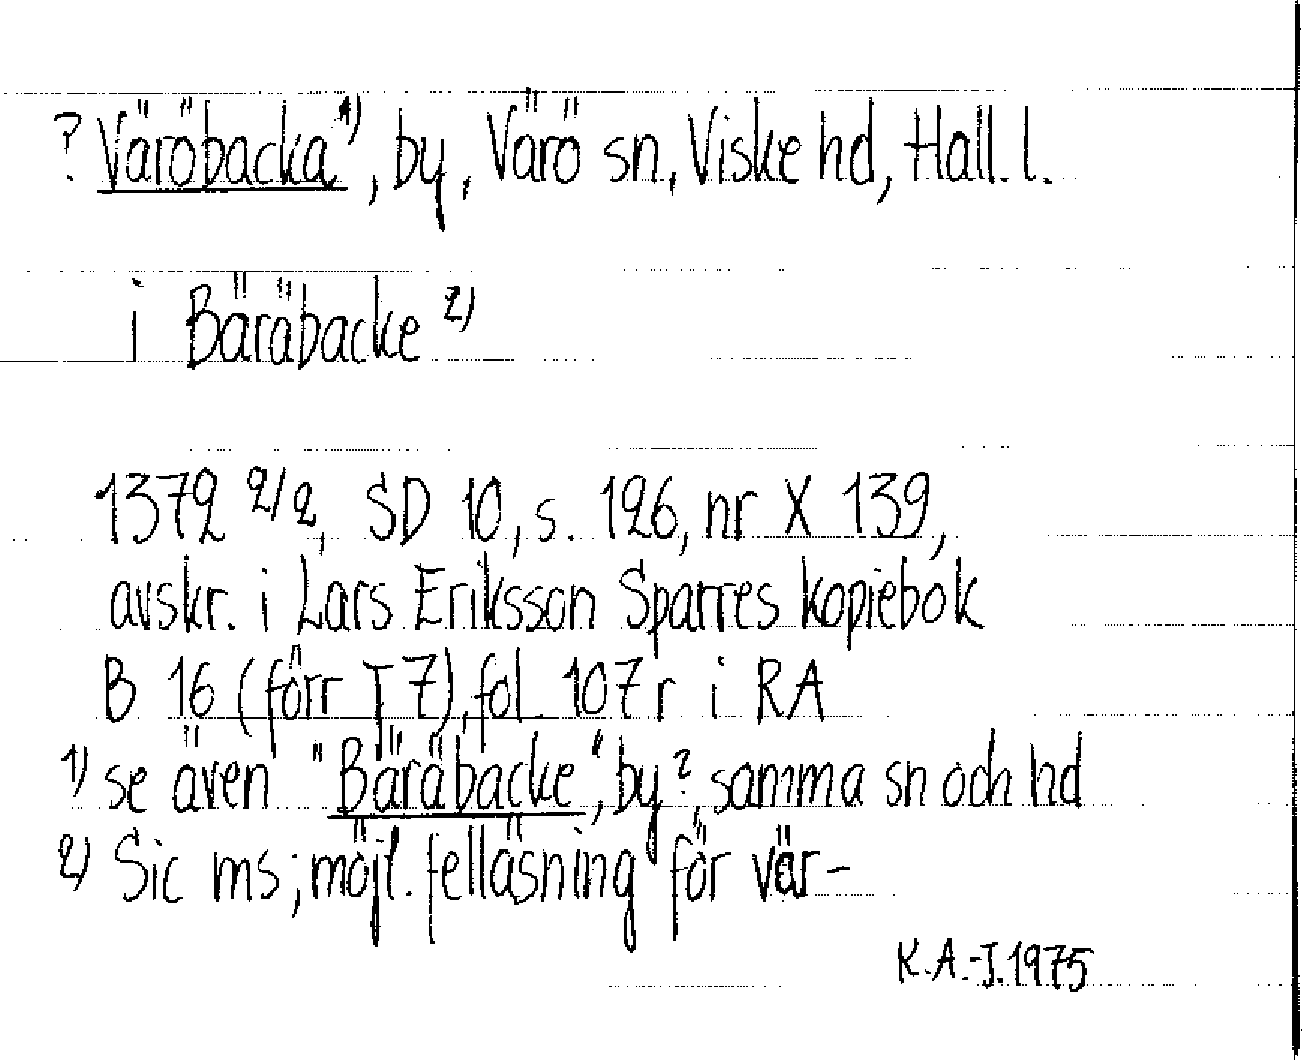 ? Väröbacka 1), by, Värö sn, Viske hd, Hall. l.
i Bäräbacke 2)
1379 2/2, SD 10, s. 126, nr X 139,
avskr. i Lars Eriksson Sparres kopiebok
B 16 (förr T 7), fol. 107 r i RA
1) se även "Bäräbacke", by?, samma sn och hd
2) Sic ms; möjl. felläsning för vär-
K. A.-J. 1975